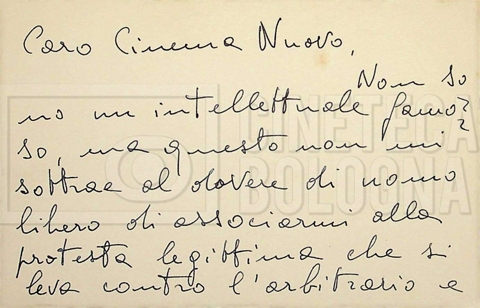 Caro Cinema Nuovo,
Non so
no un intellettuale famo?
so, ma questo non mi?
sottrae al dovere di uomo
libero di associarmi alla
protesta legittima che si
leva contro l'arbitrario e
CINETECA
BOLOGNA